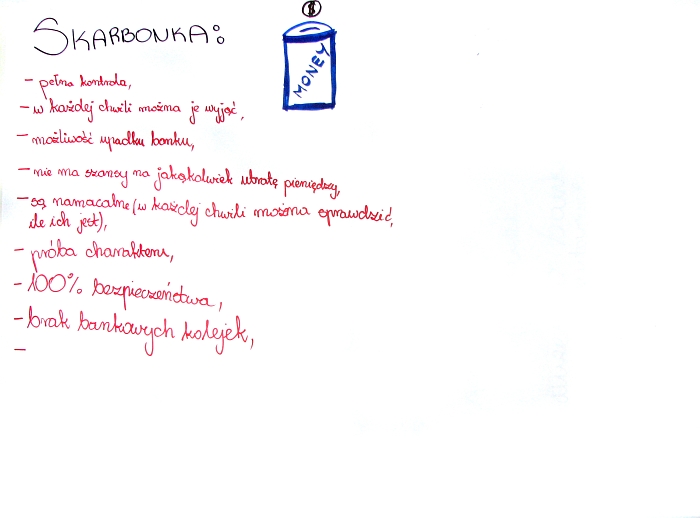 SKARBONKA:
$
MONEY
- pełna kontrola,
- w każdej chwili można je wyjąć,
- możliwość upadku banku,
- nie ma szansy na jakąkolwiek utratę pieniędzy,
- są namacalne (w każdej chwili można sprawdzić,
ile ich jest),
- próba charakteru,
- 100% bezpieczeństwa,
- brak bankowych kolejek,
-